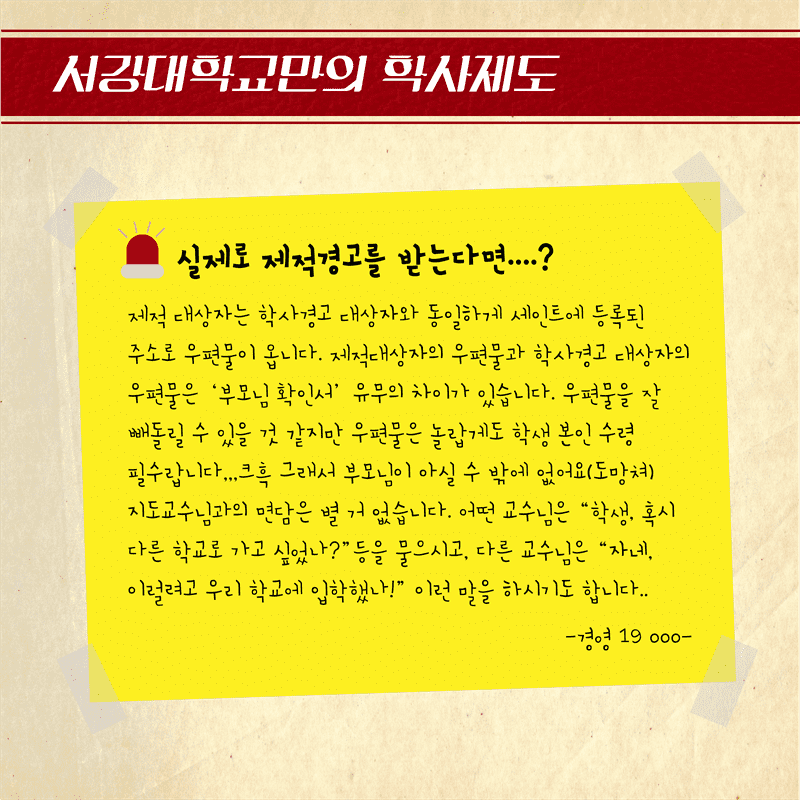 서강대학교만의 학사제도
실제로 제적경고를 받는다면....?
제적 대상자는 학사경고 대상자와 동일하게 세인트에 등록된
주소로 우편물이 옵니다. 제적대상자의 우편물과 학사경고 대상자의
우편물은 ‘부모님 확인서’ 유무의 차이가 있습니다. 우편물을 잘
빼돌릴 수 있을 것 같지만 우편물은 놀랍게도 학생 본인 수령
필수랍니다,,,크흑 그래서 부모님이 아실 수 밖에 없어요(도망쳐)
지도교수님과의 면담은 별 거 없습니다. 어떤 교수님은 “학생, 혹시
다른 학교로 가고 싶었나?”등을 물으시고, 다른 교수님은 “자네,
이럴려고 우리 학교에 입학했나!” 이런 말을 하시기도 합니다..
-경영 19 ooo-